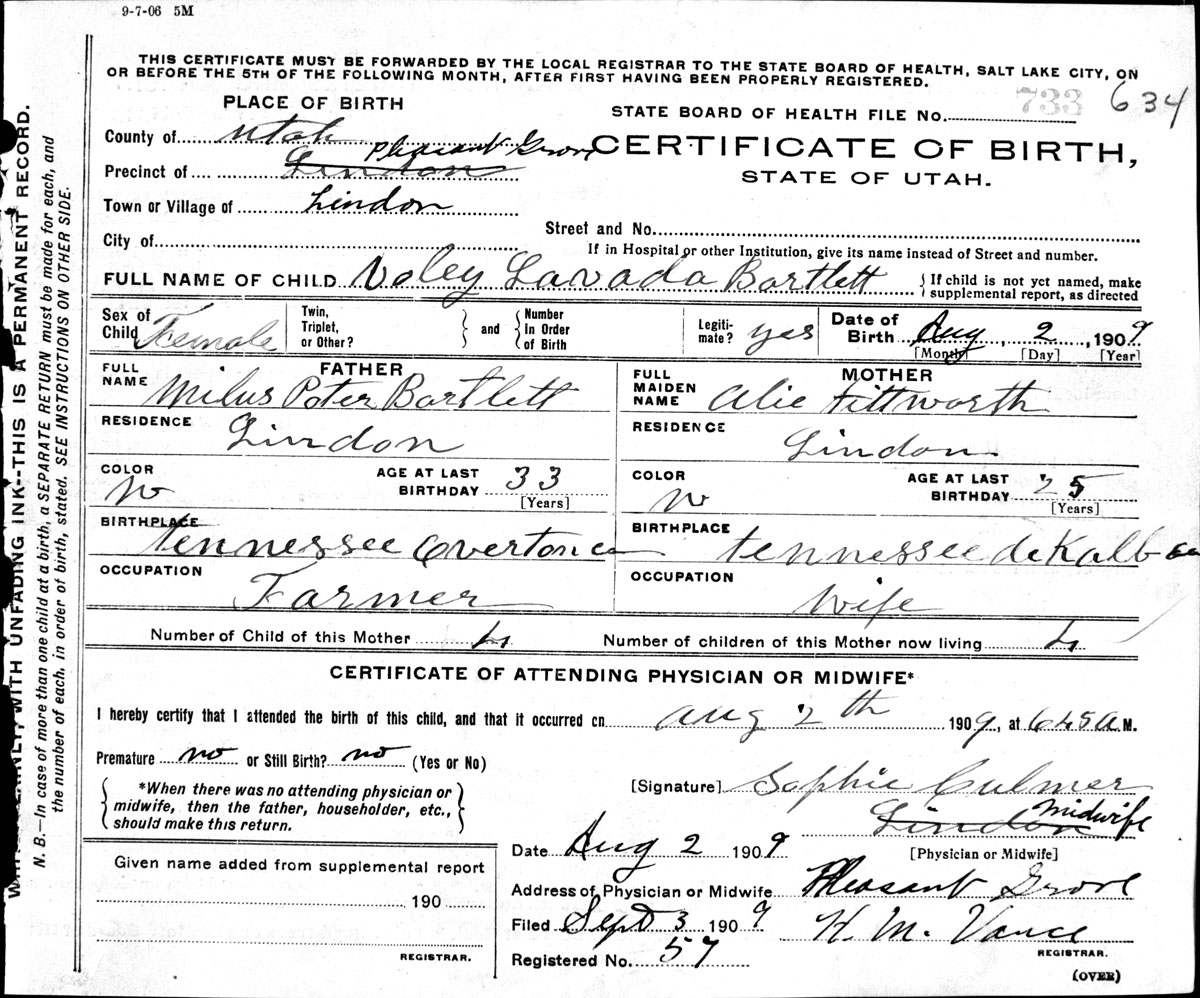 9-7-06 5M
THIS CERTIFICATE MUST BE FORWARDED BY THE LOCAL REGISTRAR TO THE STATE BOARD OF HEALTH, SALT LAKE CITY, ON
OR BEFORE THE 5TH OF THE FOLLOWING MONTH, AFTER FIRST HAVING BEEN PROPERLY REGISTERED.
PLACE OF BIRTH
STATE BOARD OF HEALTH FILE No. 733 634
County of Utah
CERTIFICATE OF BIRTH,
STATE OF UTAH.
Precinct of Lindon Pleasant Grove
Town or Village of Lindon
Street and No.
City of
If in Hospital or other Institution, give its name instead of Street and number.
FULL NAME OF CHILD Voley Lavada Bartlett { If child is not yet named, make
supplemental report, as directed
Sex of Child Female
Twin, Triplet, or Other? } and { Number In Order of Birth
Legiti-mate? yes
Date of Birth Aug 2, 1909
[Month] [Day] [Year]
FATHER
FULL NAME Milus Peter Bartlett
RESIDENCE Lindon
COLOR W
AGE AT LAST BIRTHDAY 33
[Years]
BIRTHPLACE tennessee Overton co
OCCUPATION Farmer
MOTHER
FULL MAIDEN NAME Alie tittworth
RESIDENCE Lindon
COLOR W
AGE AT LAST BIRTHDAY 25
[Years]
BIRTHPLACE tennessee deKalb co
OCCUPATION Wife
Number of Child of this Mother 4 Number of children of this Mother now living 4
CERTIFICATE OF ATTENDING PHYSICIAN OR MIDWIFE*
I hereby certify that I attended the birth of this child, and that it occurred on Aug 2th 1909, at 645 A M.
Premature no or Still Birth? no (Yes or No)
{ *When there was no attending physician or
midwife, then the father, householder, etc.,
should make this return. }
[Signature] Sophie Culmer
Lindon midwife
[Physician or Midwife]
Date Aug 2 1909
Given name added from supplemental report
190
REGISTRAR.
Address of Physician or Midwife Pleasant Grove
Filed Sept 3 1909 H. M. Vance
REGISTRAR.
Registered No. 57
(OVER)
PLAINLY, WITH UNFADING INK--THIS IS A PERMANENT RECORD.
N. B.—In case of more than one child at a birth, a SEPARATE RETURN must be made for each, and
the number of each, in order of birth, stated. SEE INSTRUCTIONS ON OTHER SIDE.